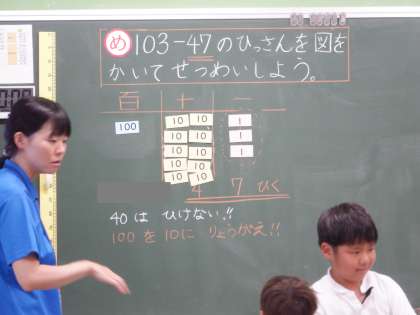 め 103-47のひっさんを図を
かいてせつめいしよう。
百 十 一
100 10 10 1
10 10 1
10 10 1
10 10
10 10
4 7 ひく
40は ひけない!!
100を10に りょうがえ!!